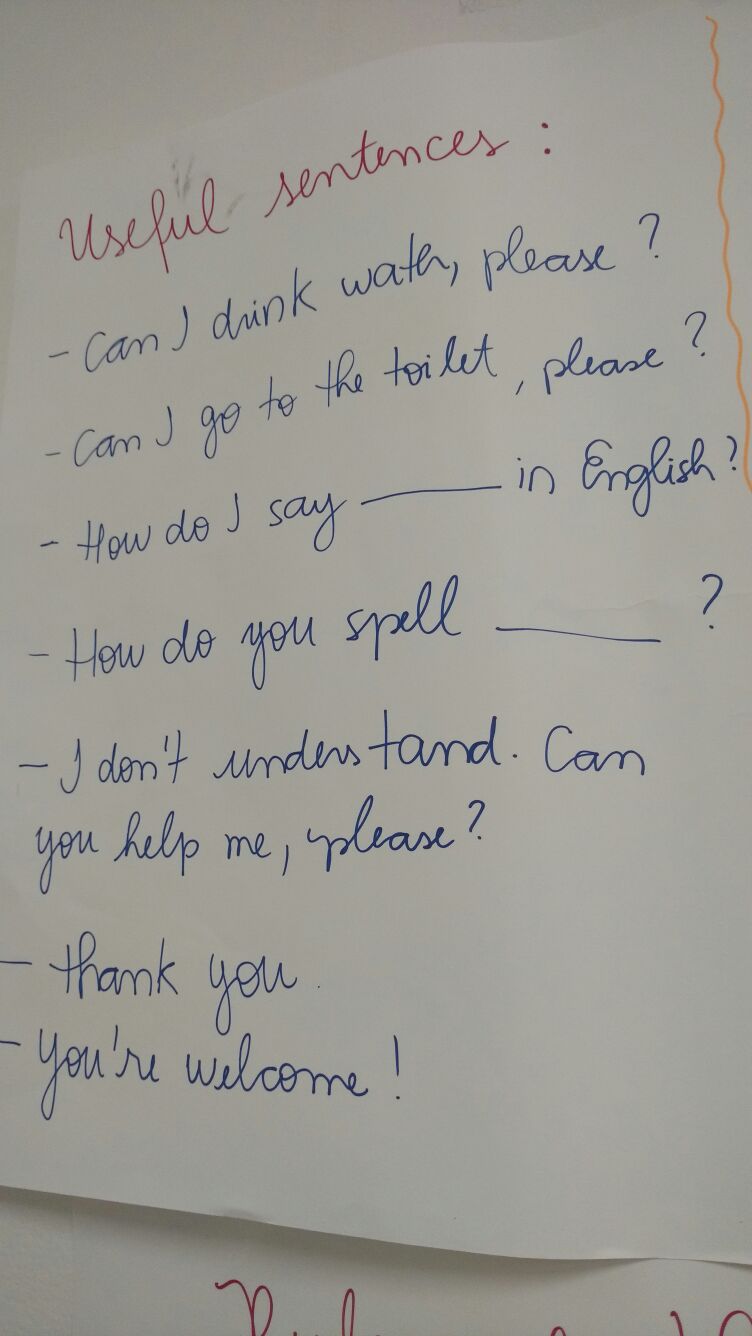 Useful sentences :
- Can I drink water, please ?
- Can I go to the toilet, please ?
- How do I say ______ in English?
- How do you spell ______ ?
- I don't understand. Can
you help me, please?
- thank you.
- You're welcome !